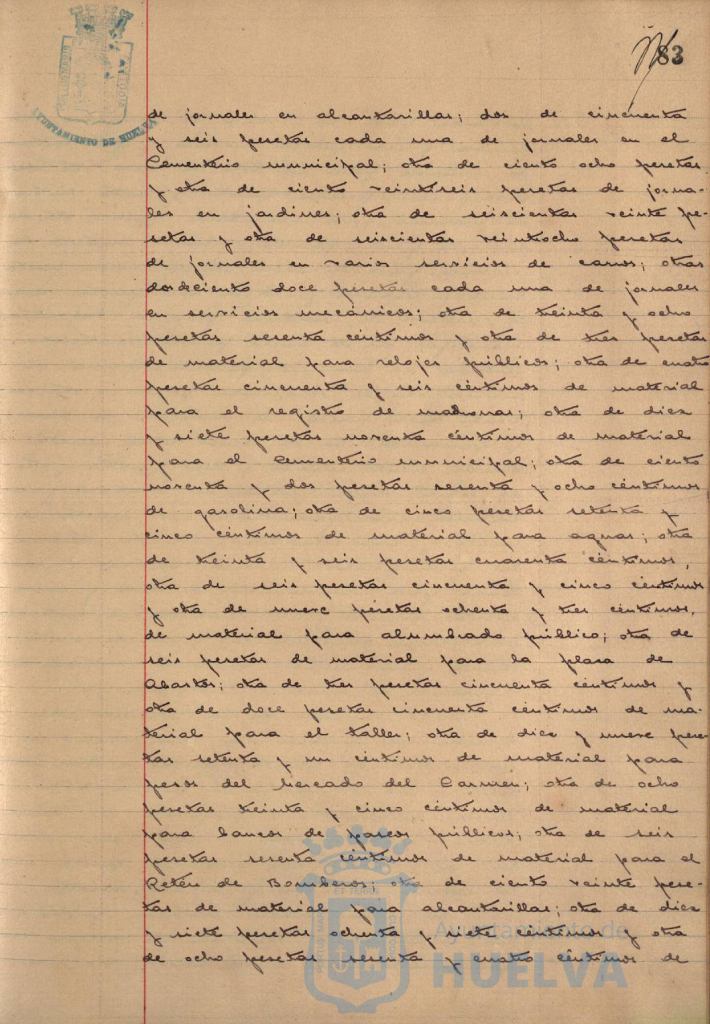 AYUNTAMIENTO DE HUELVA
83
de jornales en alcantarillas; dos de cincuenta
y seis pesetas cada una de jornales en el
Cementerio municipal; otra de ciento ocho pesetas
y otra de ciento veintiseis pesetas de jorna-
les en jardines; otra de seiscientas veinte pe-
setas y otra de seiscientas veintiocho pesetas
de jornales en varios servicios de carros; otras
dos de ciento doce pesetas cada una de jornales
en servicios mecánicos; otra de treinta y ocho
pesetas sesenta céntimos y otra de tres pesetas
de material para relojes públicos; otra de cuatro
pesetas cincuenta y seis céntimos de material
para el registro de matronas; otra de diez
y siete pesetas noventa céntimos de material
para el Cementerio municipal; otra de ciento
noventa y dos pesetas sesenta y ocho céntimos
de gasolina; otra de cinco pesetas setenta y
cinco céntimos de material para aguas; otra
de treinta y seis pesetas cuarenta céntimos,
otra de seis pesetas cincuenta y cinco céntimos
y otra de nueve pesetas ochenta y tres céntimos,
de material para alumbrado público; otra de
seis pesetas de material para la plaza de
Abastos; otra de tres pesetas cincuenta céntimos y
otra de doce pesetas cincuenta céntimos de ma-
terial para el taller; otra de diez y nueve pese-
tas setenta y un céntimos de material para
pesos del Mercado del Carmen; otra de ocho
pesetas treinta y cinco céntimos de material
para bancos de paseos públicos; otra de seis
pesetas sesenta céntimos de material para el
Retén de Bomberos; otra de ciento veinte pese-
tas de material para alcantarillas; otra de diez
y siete pesetas ochenta y siete céntimos y otra
de ocho pesetas sesenta y cuatro céntimos de
Ayuntamiento de
HUELVA